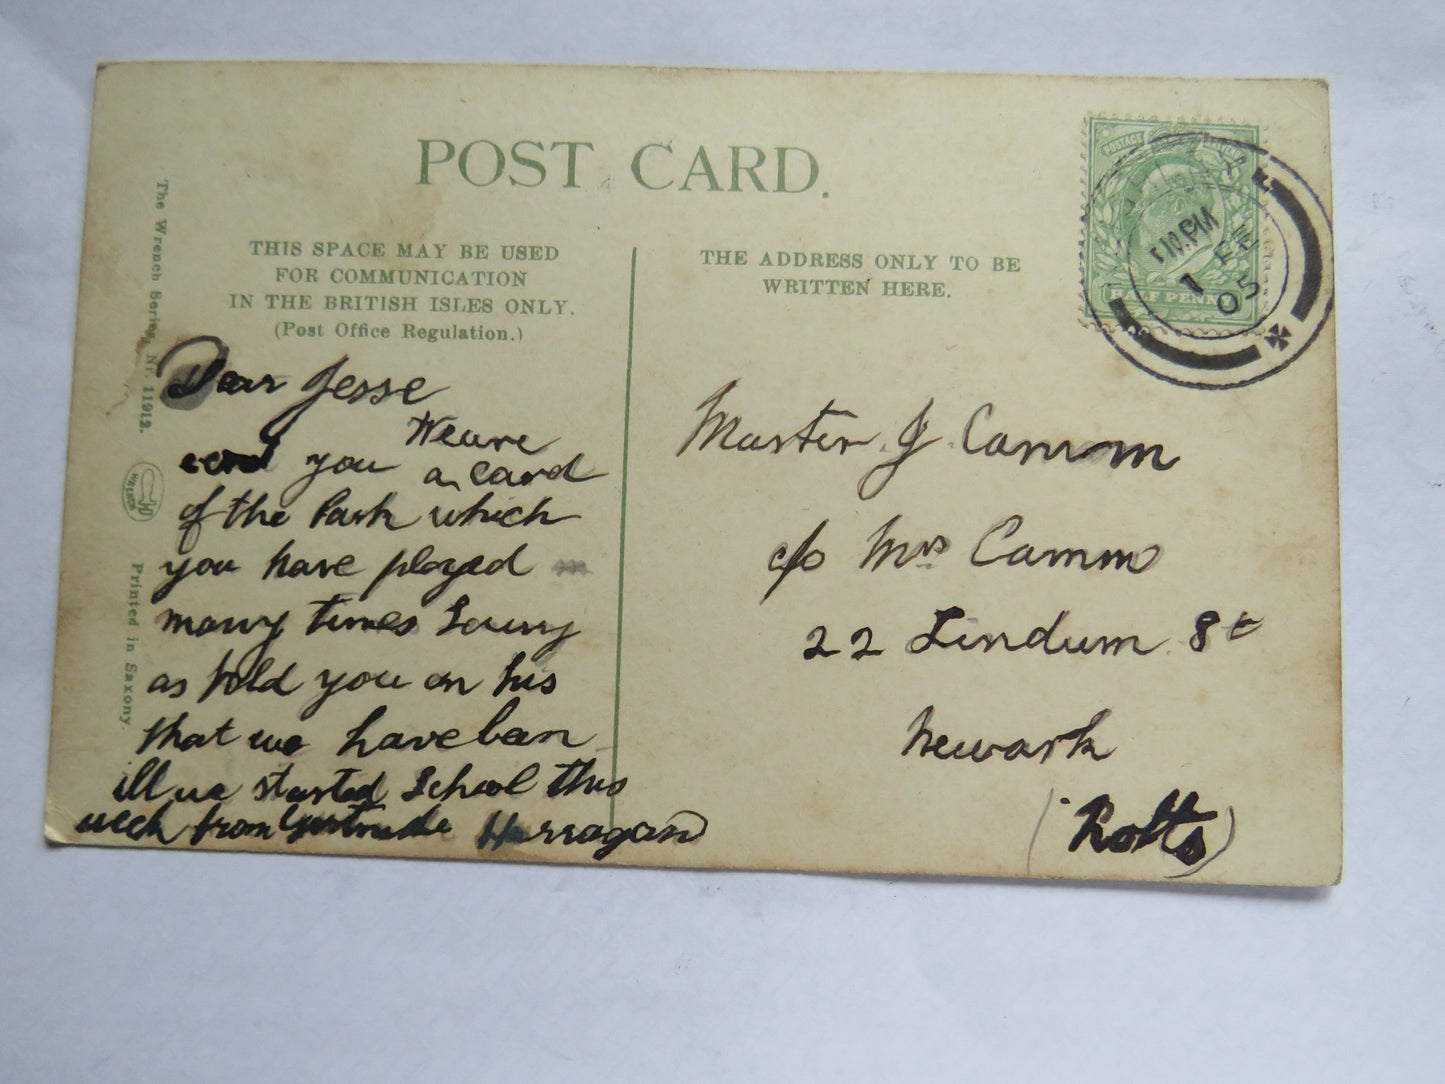 POST CARD.
THIS SPACE MAY BE USED
FOR COMMUNICATION
IN THE BRITISH ISLES ONLY.
(Post Office Regulation.)
THE ADDRESS ONLY TO BE
WRITTEN HERE.
The Wrench Series, Nr. 11912.
WRENCH
Printed in Saxony.
POSTAGE
HALF PENNY
PM
1 FE
05
Dear Jesse
We are
send you a card
of the Park which
you have played
many times
as told you on his
that we have been
ill we started School this
week from Gertrude Harragan
Master J Camm
c/o Mrs Camm
22 Lindum St
Newark
(Notts)